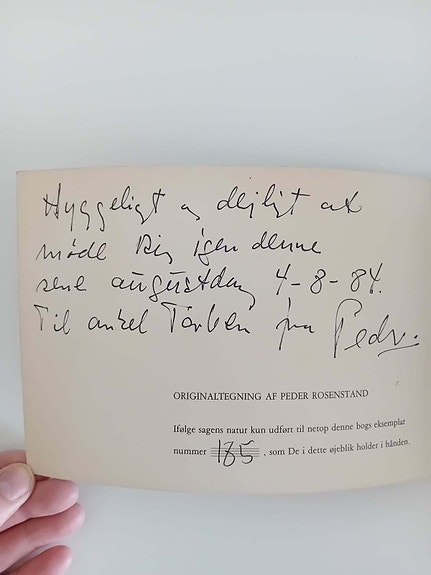 Hyggeligt og dejligt at
møde Dig igen denne
sene augustdag 4-8-84.
Til onkel Torben fra Peder.
ORIGINALTEGNING AF PEDER ROSENSTAND
Ifølge sagens natur kun udført til netop denne bogs eksemplar
nummer 185, som De i dette øjeblik holder i hånden.